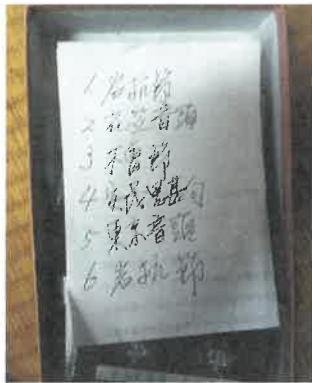 1 炭坑節
2 花笠音頭
3 木曽節
4 甚句
5 東京音頭
6 炭坑節